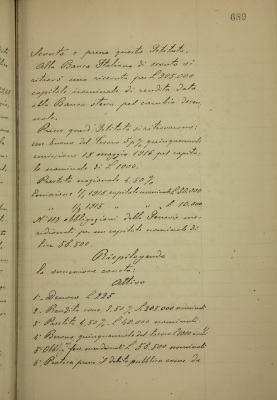 689
Sconto e presso questo Istituto.
Alla Banca Italiana di Sconto si
ritrovò una ricevuta per L. 205.000
capitale nominale di rendita data
alla Banca stessa pel cambio decen-
nale.
Presso quest'Istituto si ritrovarono:
un buono del Tesoro 5% quinquennale
emissione 15 maggio 1916 pel capita-
le nominale di L. 1000.
Prestito nazionale 4,50%
Emissione 1/1 1915 capitale nominale L. 30.000
" 1/7 1915 " " L. 10.000
N. 113 obbligazioni delle Ferrovie me-
ridionali per un capitale nominale di
lire 56.500.
Riepilogando
la successione consta:
Attivo
1° Denaro L. 225
2° Rendita cons. 3,50% L. 205.000 nominali
3° Prestito 4,50% L. 40.000 nominali
4° Buono quinquennale del Tesoro L. 1000
5° Obblig. ferr. meridionali L. 56.500 nominali
6° presso il debito pubblico come da